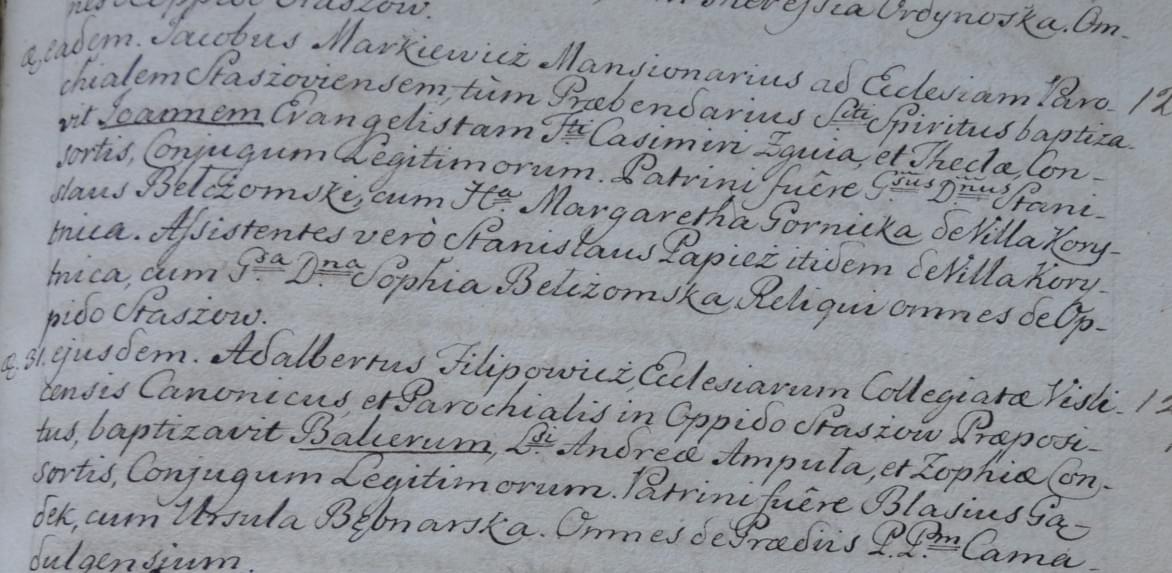 nes de Oppido Staszow. Theressia Ordynoska. Om-
æ, eadem. Jacobus Markiewicż Mansionarius ad Ecclesiam Paro- 12
chialem Staszoviensem, tùm Præbendarius Scti Spiritus baptiza-
vit Joannem Evangelistam Fti Casimiri Zguia, et Theclæ, Con-
sortis, Conjugum Legitimorum. Patrini fuêre Gsus Dnus Stani-
slaus Bełcżomski, cum Ha. Margaretha Gornicka de Villa Kory-
tnica. Assistentes verò Stanisłaus Papież itidem de Villa Kory-
tnica, cum Gsa Dna Sophia Bełiżomska Reliqui omnes de Op-
pido Staszow.
æ. 31. ejusdem. Adalbertus Filipowicż, Ecclesiarum Collegiatæ Visli- 12
censis Canonicus, et Parochialis in Oppido Staszow Præposi-
tus, baptizavit Balierum, Lsi. Andreæ Ampuła, et Zophiæ Con-
sortis, Conjugum Legitimorum. Patrini fuêre Blasius Gą-
dek, cum Ursula Bębnarska. Omnes de Prædiis P.Pm Cama-
dulgensium.